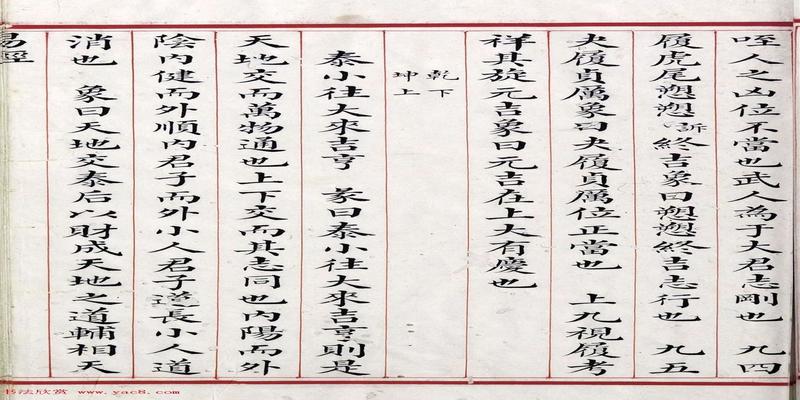 咥人之凶位不當也武人為于大君志剛也 九四
履虎尾愬愬訴終吉象曰愬愬終吉志行也 九五
夬履貞厲象曰夬履貞厲位正當也 上九視履考
祥其旋元吉象曰元吉在上大有慶也
乾下
坤上
泰小往大來吉亨 彖曰泰小往大來吉亨則是
天地交而萬物通也上下交而其志同也內陽而外
陰內健而外順內君子而外小人君子道長小人道
消也 象曰天地交泰后以財成天地之道輔相天
易經
书法欣赏 www.yac8.com